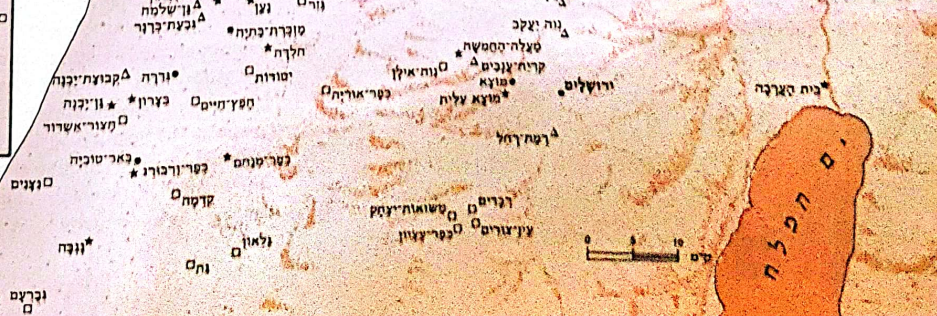 גזר
נען
גן-שלמה
גבעת-ברנר
מזכרת-בתיה
חלדה
נוה יעקב
מעלה-החמשה
קרית-ענבים
נוה-אילן
מוצא
מוצא עלית
ירושלים
בית הערבה
קבוצת-יבנה
גדרה
יסודות
כפר-אוריה
גן-יבנה
בצרון
חפץ-חיים
חצור-אשדוד
רמת-רחל
באר-טוביה
כפר-ורבורג
כפר-מנחם
ניצנים
קדמה
משואות-יצחק
רבדים
כפר-עציון
עין-צורים
נגבה
גלאון
גת
גברעם
ים המלח
0 5 10 קמ